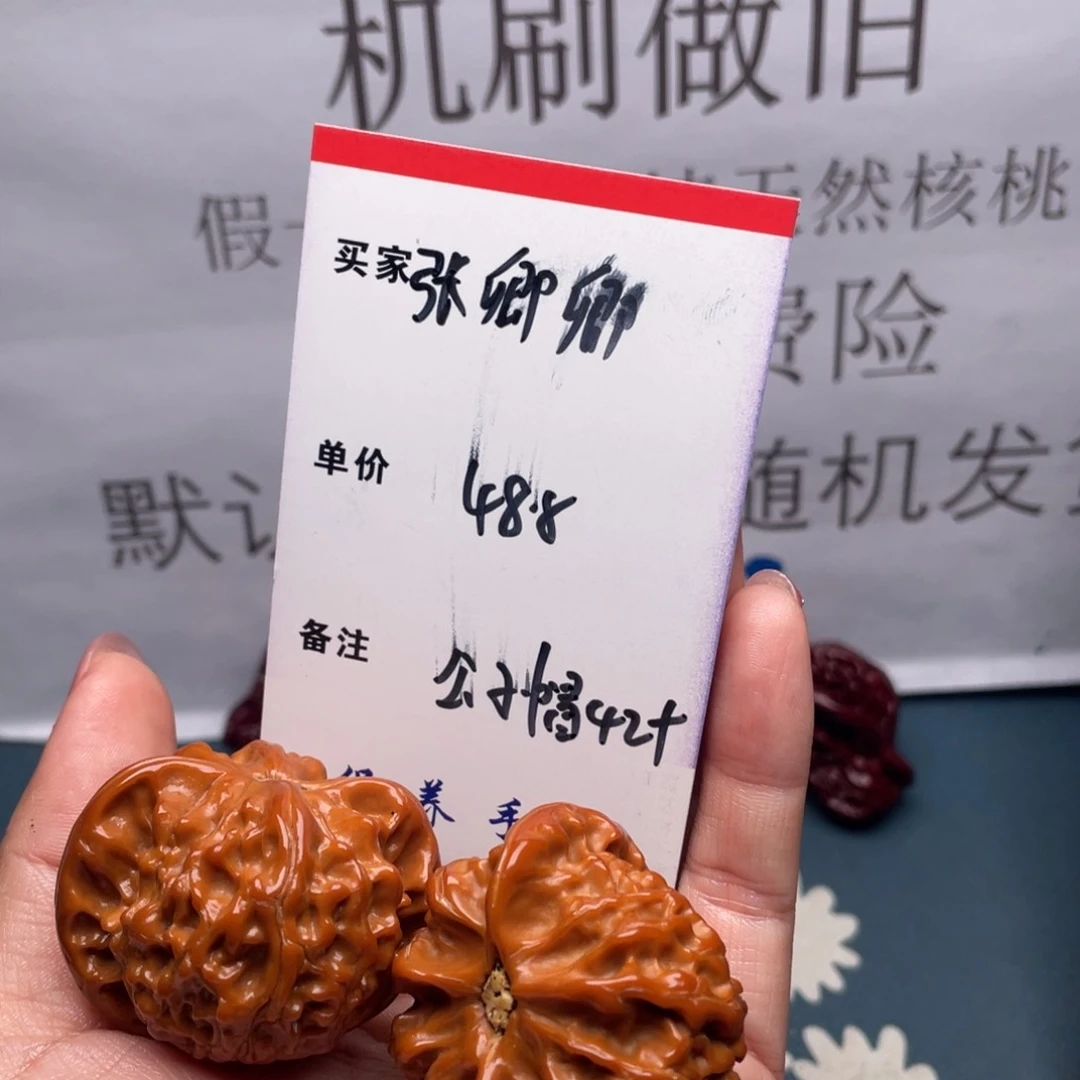 机刷做旧
假一
天然核桃
费险
默认
随机发货
买家 张卿卿
单价 48.8
备注 公子帽42+
保养手